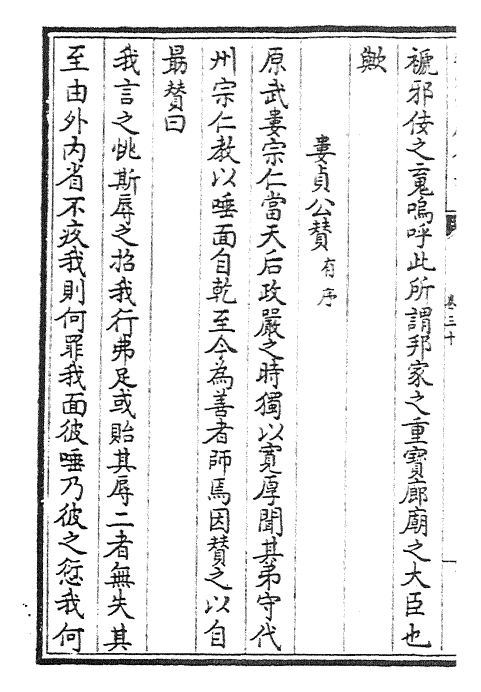 褫邪佞之䰟嗚呼此所謂邦家之重寶廊廟之大臣也
歟
婁貞公贊有序
原武婁宗仁當天后政嚴之時獨以寛厚聞其弟守代
州宗仁教以唾面自乾至今為善者師焉因贊之以自
朂贊曰
我言之恌斯辱之招我行弗足或貽其辱二者無失其
至由外内省不疚我則何罪我面彼唾乃彼之愆我何
卷三十